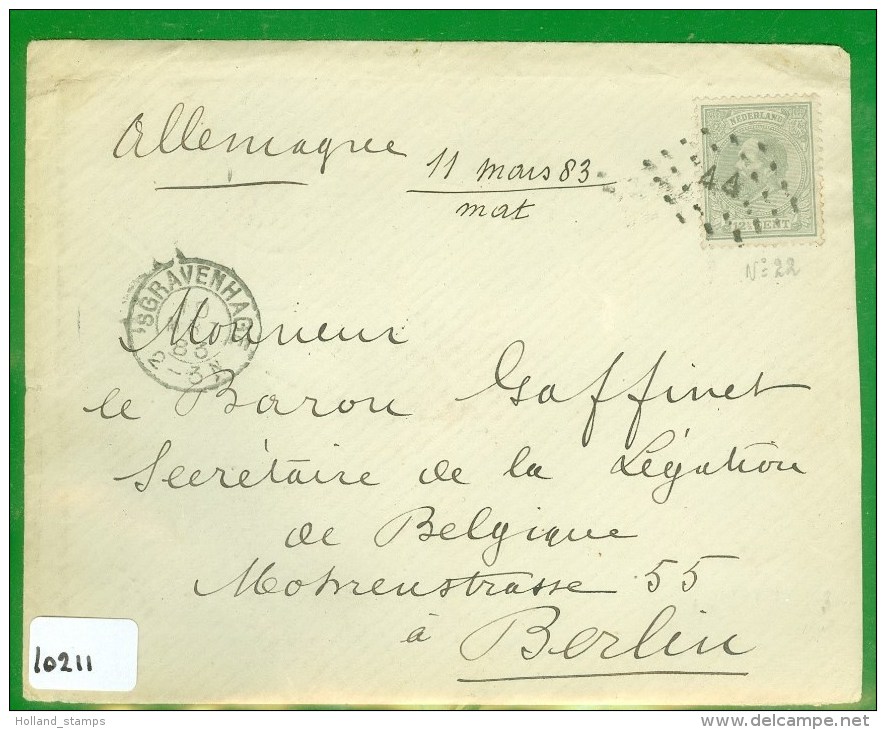 Allemagne
11 mars 83
mat
NEDERLAND
44
12½ CENT
No 22
'SGRAVENHAGE
83
2-3N
Monsieur
le Baron Gaffinet
Secrétaire de la Légation
de Belgique
Mohrenstrasse 55
à Berlin
10211
Holland_stamps
www.delcampe.net